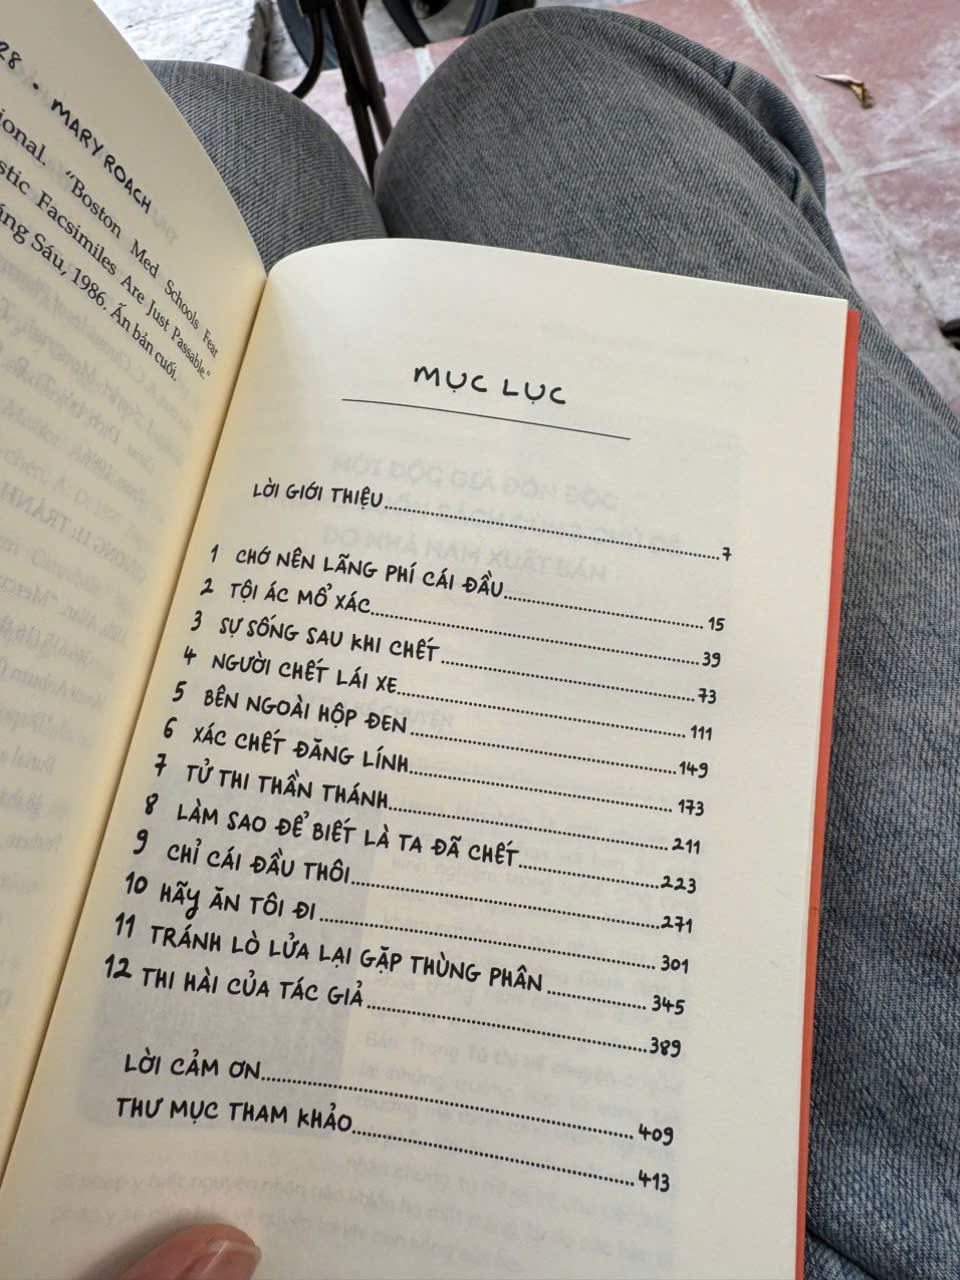 28 • MARY ROACH
ional. "Boston Med Schools Fear
stic Facsimiles Are Just Passable."
áng Sáu, 1986. Ấn bản cuối.
MỤC LỤC
LỜI GIỚI THIỆU........7
1 CHỚ NÊN LÃNG PHÍ CÁI ĐẦU........15
2 TỘI ÁC MỔ XÁC........39
3 SỰ SỐNG SAU KHI CHẾT........73
4 NGƯỜI CHẾT LÁI XE........111
5 BÊN NGOÀI HỘP ĐEN........149
6 XÁC CHẾT ĐĂNG LÍNH........173
7 TỬ THI THẦN THÁNH........211
8 LÀM SAO ĐỂ BIẾT LÀ TA ĐÃ CHẾT........223
9 CHỈ CÁI ĐẦU THÔI........271
10 HÃY ĂN TÔI ĐI........301
11 TRÁNH LÒ LỬA LẠI GẶP THÙNG PHÂN........345
12 THI HÀI CỦA TÁC GIẢ........389
LỜI CẢM ƠN........409
THƯ MỤC THAM KHẢO........413